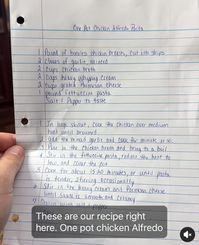 One Pot Chicken Alfredo Pasta
1 Pound of boneless chicken breasts, cut into strips
2 Cloves of garlic minced
2 Cups chicken broth
2 Cups heavy whipping cream
2 Cups grated Parmesan cheese
1 pound Fettuccine pasta
Salt & Pepper to taste
1 In large skillet, cook the chicken over medium
heat until browned
2 Add the minced garlic and cook for minute or so.
3 Pour in the chicken broth and bring to a boil
4 Stir in the fettuccine pasta, reduce the heat to
low, and cover the pot
5 Cook for about 15-20 minutes, or until pasta
is tender, stirring occasionally
6 Stir in the heavy cream and Parmesan cheese
until sauce is smooth and creamy
These are our recipe right
here. One pot chicken Alfredo